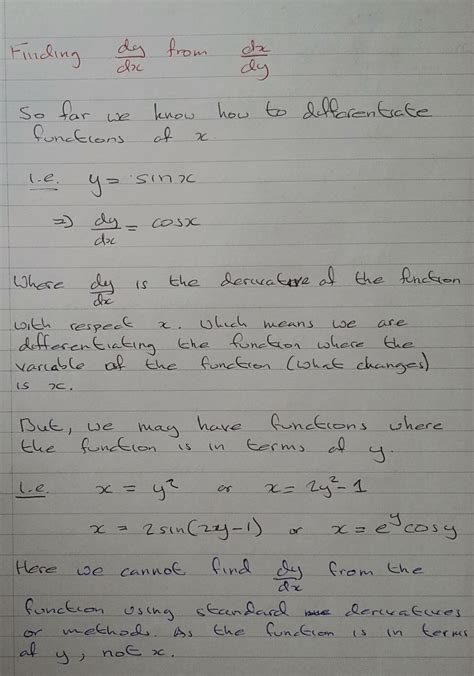 Finding dy/dx from dx/dy
So far we know how to differentiate
functions of x
i.e. y = sinx
⇒ dy/dx = cosx
Where dy/dx is the derivative of the function
with respect x. Which means we are
differentiating the function where the
variable of the function (what changes)
is x.
But, we may have functions where
the function is in terms of y.
i.e. x = y² or x = 2y² - 1
x = 2sin(2y-1) or x = e^y cosy
Here we cannot find dy/dx from the
function using standard derivatives
or methods. As the function is in terms
of y, not x.